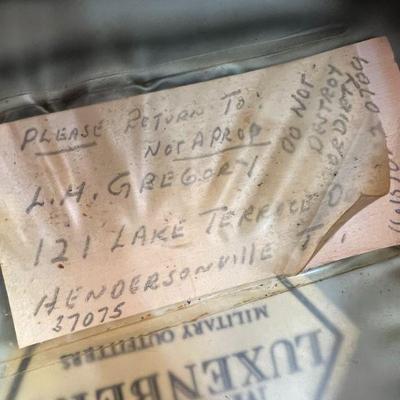 PLEASE RETURN TO:
NOT A PROP
L.H. GREGORY
121 LAKE TERRACE
HENDERSONVILLE
37075
DO NOT
DESTROY
OR DIRTY
LUXENBE
MILITARY OUTFITTERS